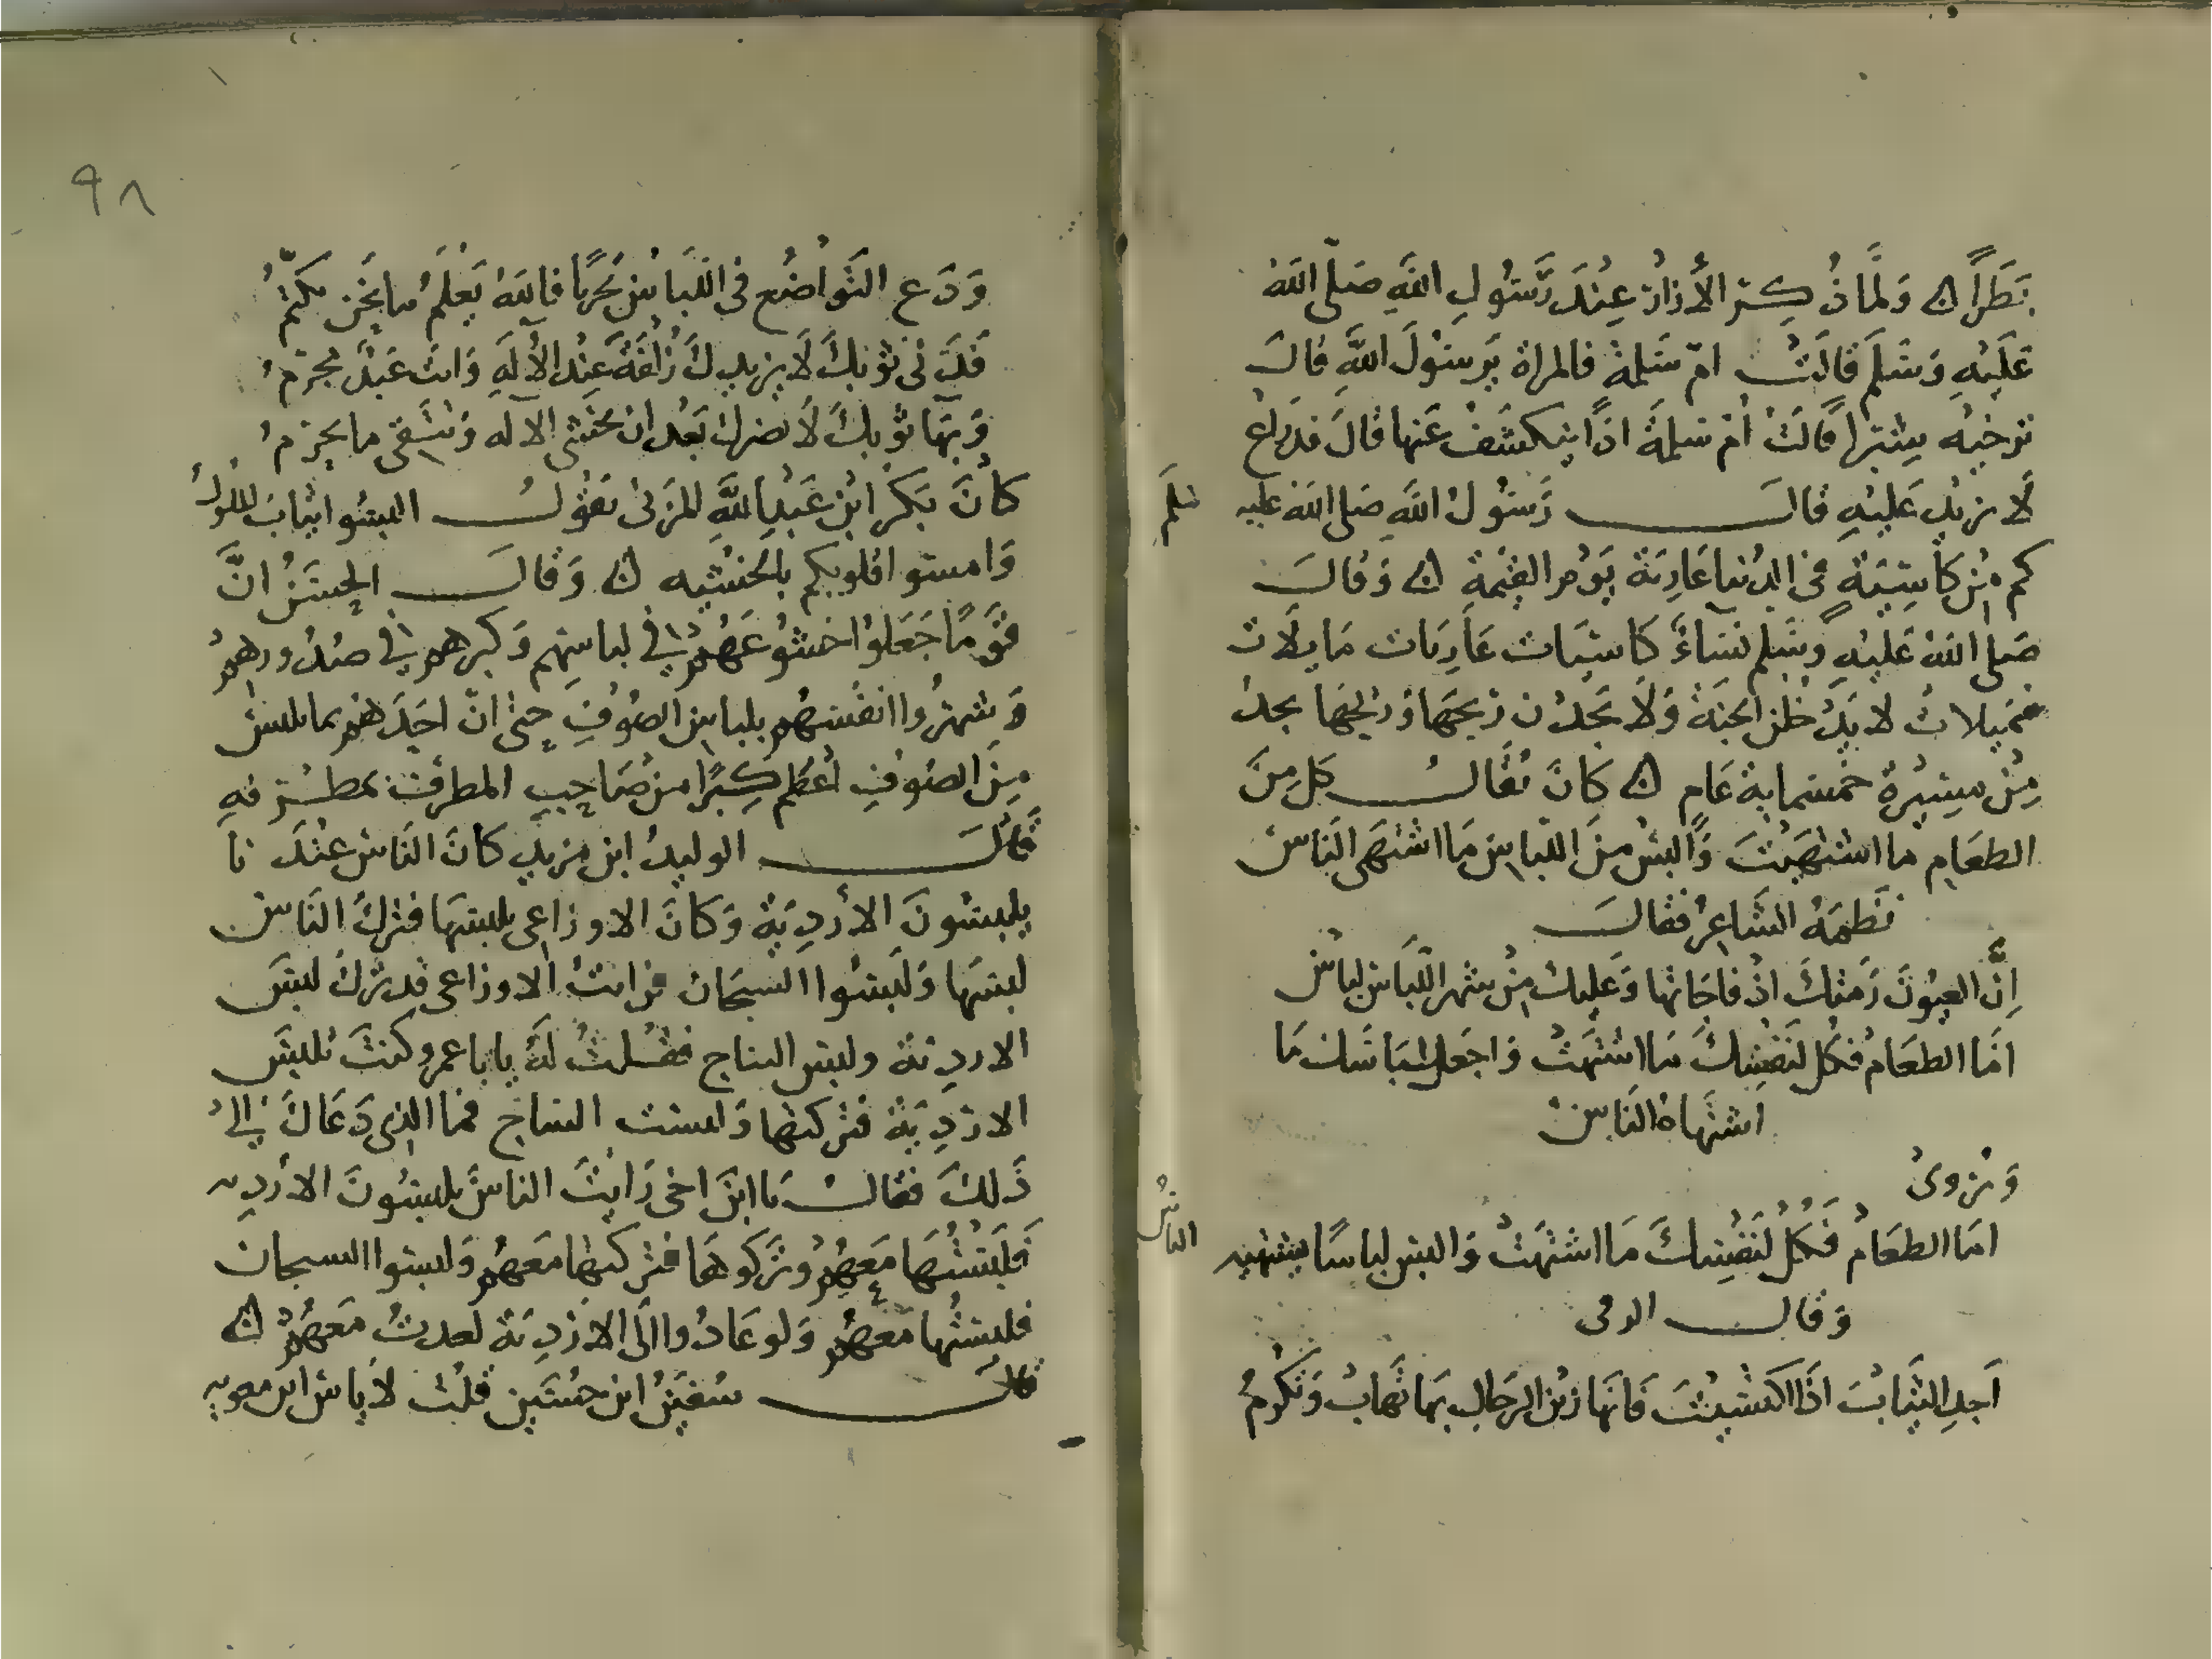 بَطَرًا ن وَلَمَّا ذُكِرَ الأُزارُ عِنْدَ رَسُولِ اللّهِ صَلى اللهُ
عَلَيْهِ وَسَلم قالَتْ امّ سَلمة فالمراة يَرسُولَ اللَّهِ قالَ
ترخيه شِبْرًا قَالَتْ اُمّ سَلمةَ اذًا ينكشَفُ عَنها قالَ فذراع
لَا تزيد عَليْهِ قالَ رَسُولُ اللَّهِ صَلى اللهُ عليه سَلم
كم مِن كاسِيَة في الدُنيا عَارِيَة يَوْمَ القِيمَة ن وَقالَ
صَلى اللهُ عَليْهِ وسَلم نسَاءً كاسيَات عَارِيَات مَايلَات
مميلات لا يَدْخلن الجنة وَلَا يَجدْن رِيحَهَا وَريحَها يجدُ
مِنْ مسِيْرة خمسماية عَام ن كانَ يُقَالُ كل مِنَ
الطعَام ما اشتهَيْتَ وَالبسْ منَ اللبَاس مَا اشتهَى الناسُ
نَظمَهُ الشاعِرُ فقالَ
اِنَّ العيُونَ رَمَتكَ اذ فاجَاتها وَعَليك مِنْ شهر اللّبَاس لباسُ
امَّا الطعَامُ فكل لنَفْسِكَ مَا اشتهَتْ وَاجعَل لبَاسَك مَا
اشتهَاهُ النَاسُ
وَيُروى
امَا الطعَامُ فَكُلْ لنَفْسِكَ مَا اشتهَتْ وَالبس لباسًا يشتهيه الناسُ
وَقالَ
اَجدِ الثيَابَ اذَا اكتسَيْتَ فَانهَا زيْن الرجَال بهَا تُهابُ وَتكْرمُ
وَدَع التوَاضُع في اللبَاس تحَرِّيًا فاللهُ يَعْلمُ ما يَجن يكتمُ
فَدَنيّ ثوْبكَ لَا يزيدكَ زُلفَةً عِند الأله وَانت عَبْدٌ مجرمُ
وَبهَا ثوْبكَ لَا يضرك بَعْد ان تخشى الاله وَتتقى ما يحرمُ
كانَ بَكرُ ابْن عَبْدِ اللَّهِ المزَنى يَقوْلُ البسُوا ثيابَ الملوك
وَاميتوا قلوبكم بالخَشْيه ن وَقالَ الحسَنُ انَّ
قوْمًا جَعَلوا خشوْعَهُمْ في لباسِهِم وَكبرهم في صُدُورهمْ
وَشهرُوا انفُسَهُم بلباس الصُوف حتى انّ احَدَهُم بما يلبسُ
مِنَ الصُوف اَعْظم كِبْرًا من صَاحِب المطرف بمطرفه
قالَ الوليدُ ابن مزيد كانَ الناسُ عندَنا
يلبسُونَ الأُردِيَة وَكانَ الاوزاعى يلبسهَا فترك الناسُ
لبسَها وَلَبسُوا السيجان فرايتُ الاوزاعى قد ترك لبسَ
الارديَة ولبس الساج فقلتُ لَهُ يابا عمرو كنتَ تلبسُ
الارْدِيَة فتركتها وَلبست الساج فما الذى دَعَاكَ اِلى
ذَلكَ فقالَ يَا ابْنَ اخى رَايْتَ الناسَ يلبسُونَ الارديه
فَلَبسْتُهَا مَعَهُمْ وترَكوهَا فتركتها مَعَهُم وَلبسُوا السيجان
فلبسْتُها مَعَهُم وَلو عَادُوا الَى الارْدِيَة لعدتُ مَعَهُمْ ن
قالَ سُفيَنُ ابن حسَين قلتُ لاياس ابن معويه
٩٨